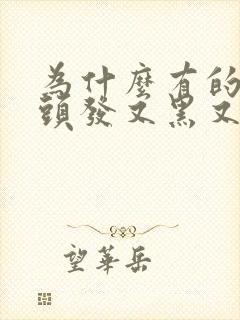 為什麼有的
頭發又黑又
望華岳